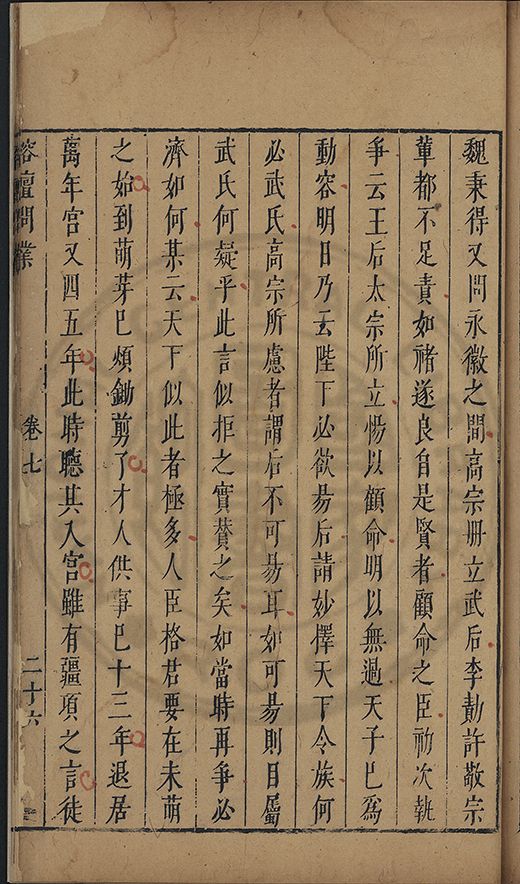 魏秉得又問永徽之間高宗冊立武后李勣許敬宗
輩都不足責如禇遂良自是賢者顧命之臣初次執
爭云王后太宗所立惕以顧命明以無過天子已為
動容明日乃云陛下必欲昜后請妙擇天下令族何
必武氏高宗所慮者謂后不可昜耳如可昜則目屬
武氏何疑乎此言似拒之實贊之矣如當時再爭必
濟如何某云天下似此者極多人臣格君要在未萌
之始到萌芽已煩鋤剪了才人供事已十三年退居
萬年宮又四五年此時聽其入宮雖有疆項之言徒
榕壇問業
卷七
二十六